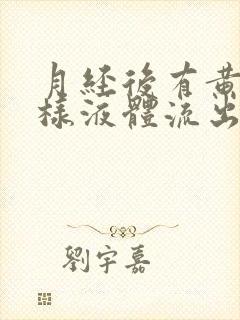 月經後有黃
樣液體流出
劉宇嘉